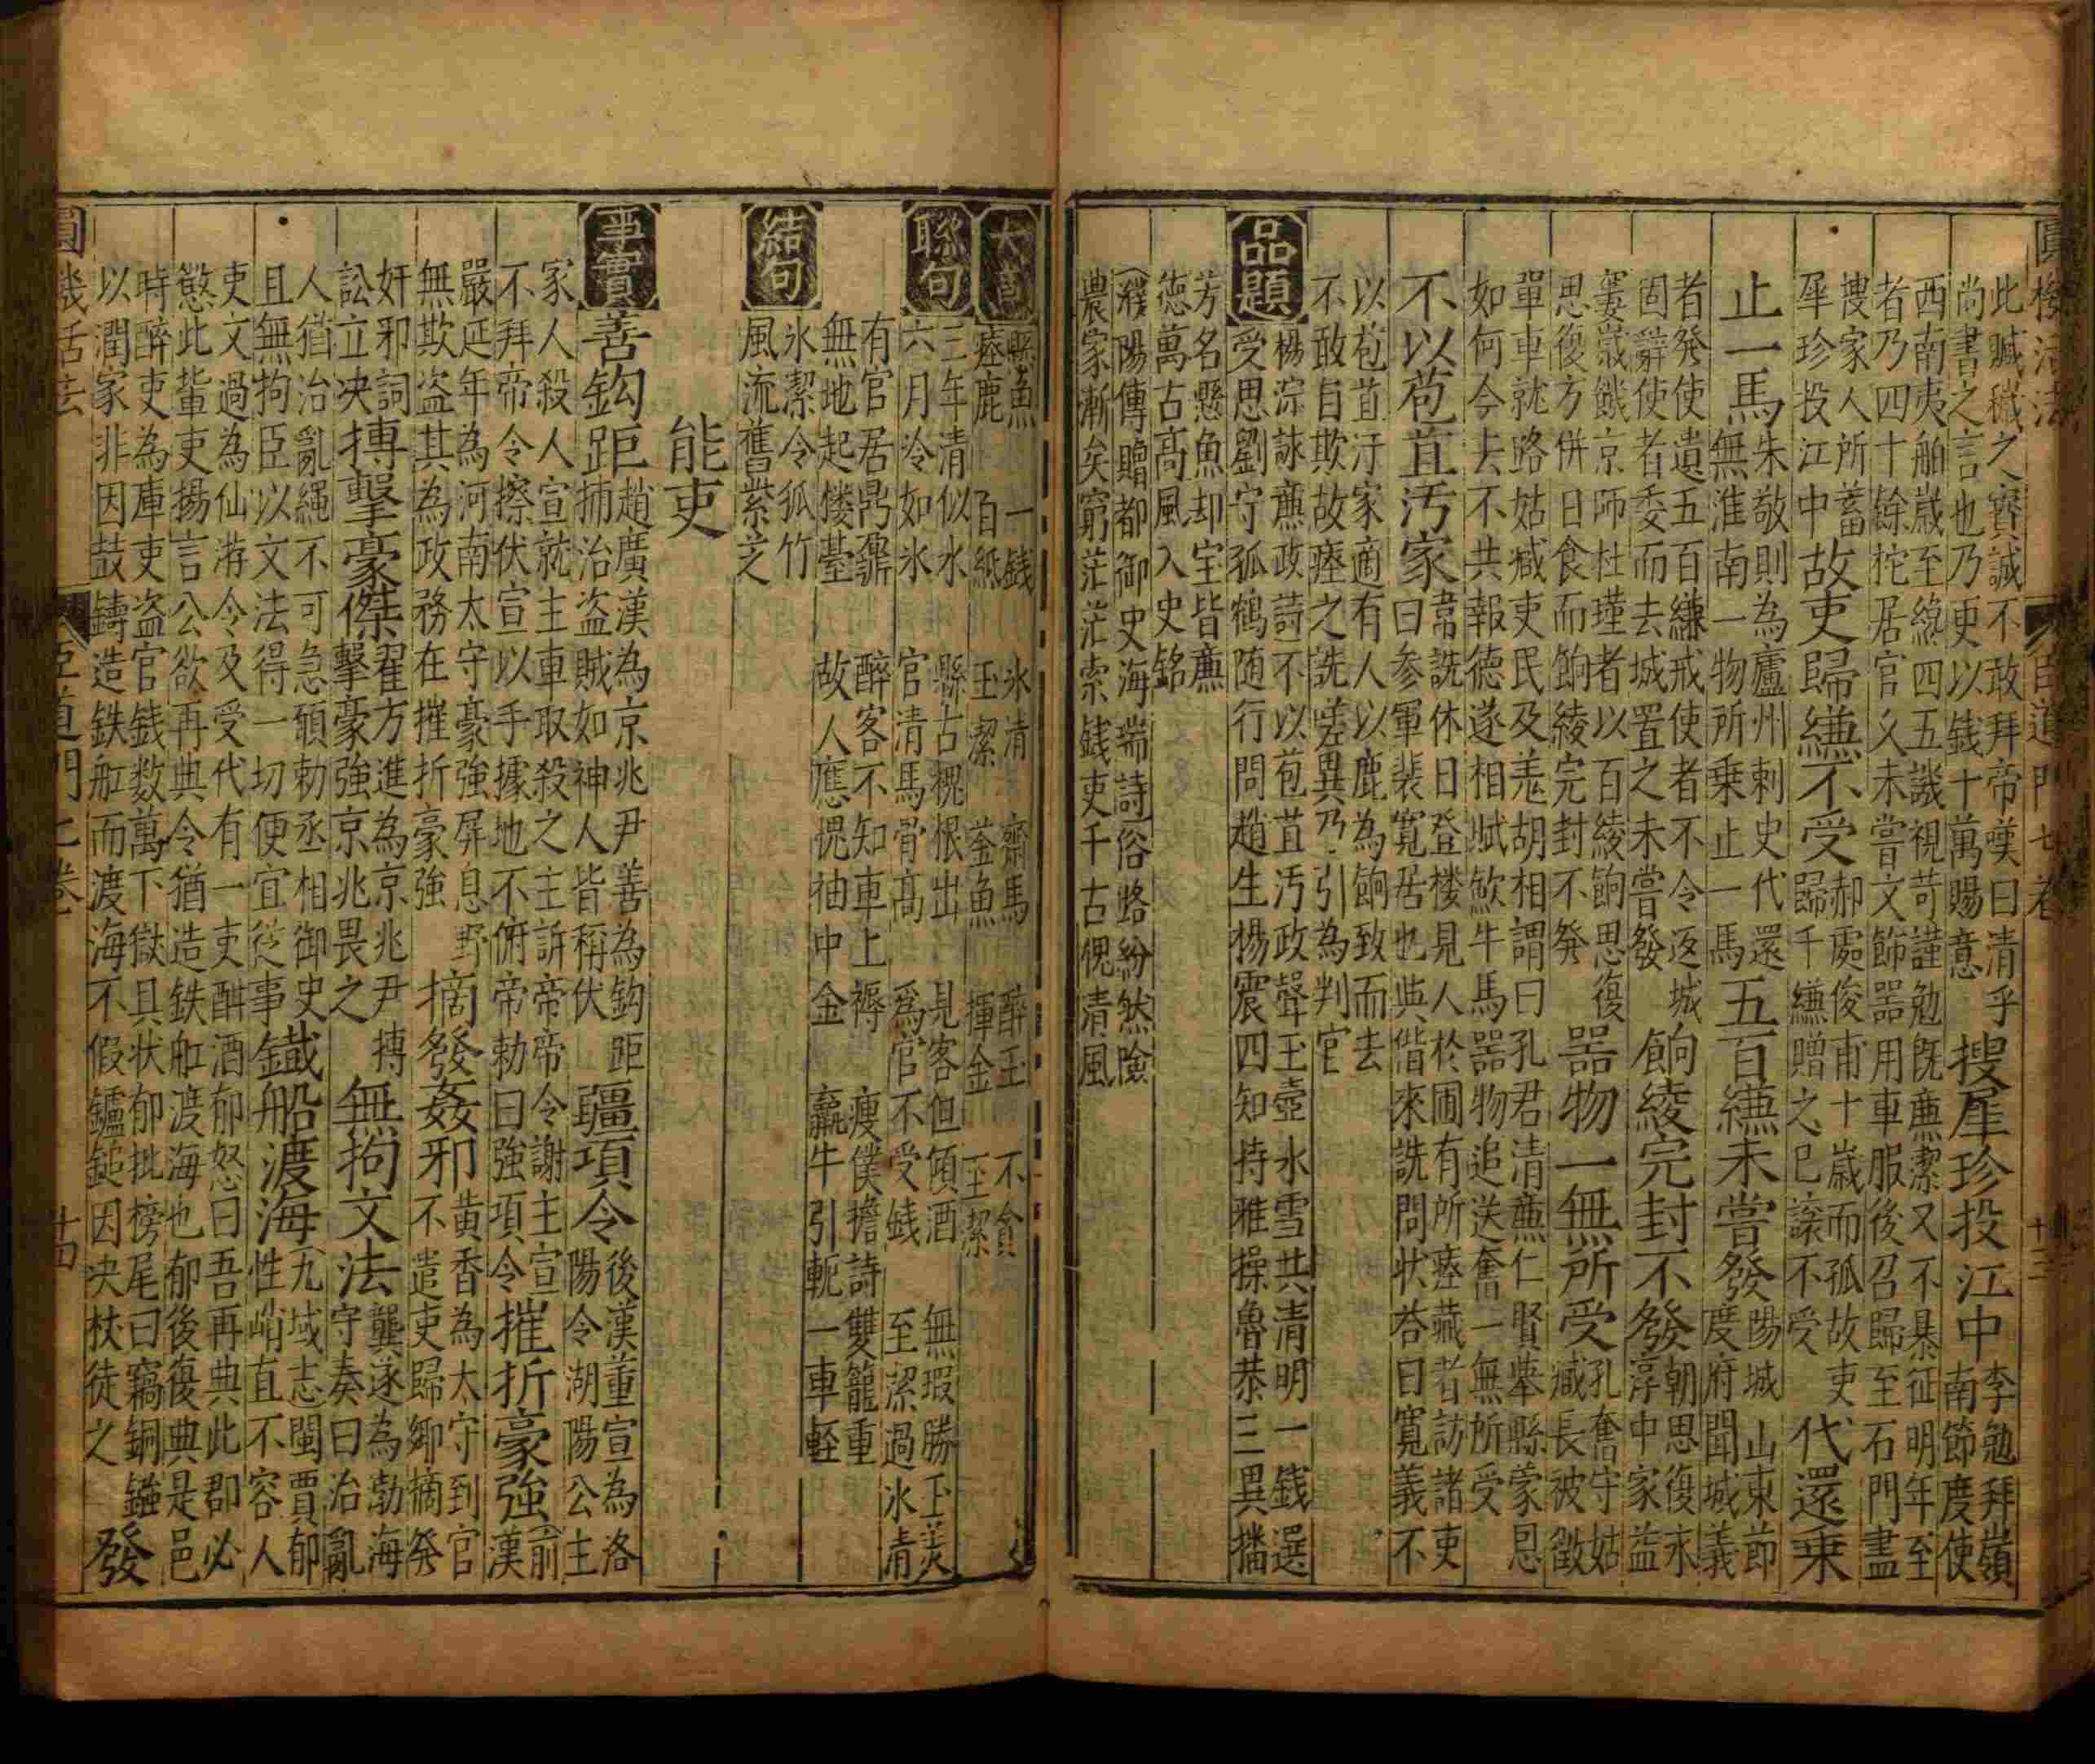 圓機活法 官道門七卷 十三
此贓穢之寶誠不敢拜帝嘆曰清乎
尚書之言也乃更以銭十萬賜意
搜犀珍投江中
李勉拜嶺
南節度使
西南夷舶歲至纔四五譏視苛謹勉既廉潔又不暴征明年至
者乃四十餘柁居官久未嘗文飾器用車服後召歸至石門盡
搜家人所蓄
犀珍投江中
故吏歸縑不受
郝處俊甫十歲而孤故吏
歸千縑贈之已讓不受
代還乗
止一馬
朱敬則為廬州刺史代還
無淮南一物所乗止一馬
五百縑未嘗發
陽城山東節
度府聞城義
者發使遺五百縑戒使者不令返城
固辭使者委而去城置之未嘗發
餉綾完封不發
朝思復永
淳中家益
窶歲饑京師杜瑾者以百綾餉思復
思復方併日食而餉綾完封不發
器物一無所受
孔奮守姑
臧長被徵
單車就路姑臧吏民及羌胡相謂曰孔君清廉仁賢舉縣蒙恩
如何今去不共報徳遂相賦歛牛馬器物追送奮一無所受
不以苞苴汚家
韋詵休日登楼見人於圃有所瘞藏者訪諸吏
曰参軍裴寛居也與偕來詵問状答曰寛義不
以苞苴汙家適有人以鹿為餉致而去
不敢自欺故瘞之詵嗟異乃引為判官
品題
楊淙詠廉政詩不以苞苴汚政聲玉壺氷雪共清明一錢選
受思劉守孤鶴随行問趙生楊震四知持雅操魯恭三異播
芳名懸魚却宝皆廉
徳萬古高風入史銘
(濮陽傳贈都御史海瑞詩)俗路紛然險
農家漸矣窮茫茫索銭吏千古愧清風
懸魚 一銭 氷清 齋馬 醉玉 不貪
瘞鹿 百紙 玉潔 釜魚 揮金 玉潔
聯句
三年清似水 縣古槐根出 見客但傾酒 無瑕勝玉美
六月冷如氷 官清馬骨高 爲官不受銭 至潔過氷清
有官居鼎鼐 醉客不知車上褥 瘦僕擔詩雙籠重
無地起楼䑓 故人應愧袖中金 羸牛引軛一車輕
結句
氷潔令狐竹
風流舊紫之
能吏
事實
善鈎距
趙廣漢為京兆尹善為鈎距
捕治盗賊如神人皆稱伏
彊項令
後漢董宣為洛
陽令湖陽公主
家人殺人宣就主車取殺之主訴帝帝令謝主宣
不拜帝令擦伏宣以手據地不俯帝勅曰強項令
摧折豪強
(前
漢
嚴延年為河南太守豪強屏息野
無欺盗其為政務在摧折豪強
摘發姦邪
黄香為太守到官
不遣吏歸鄉摘発
奸邪詞
訟立决
搏擊豪傑
翟方進為京兆尹搏
擊豪強京兆畏之
無拘文法
龔遂為勃海
守奏曰治亂
人猶治亂繩不可急願勅丞相御史
且無拘臣以文法得一切便宜従事
鐡船渡海
九域志閩賈郁
性峭直不容人
吏文過為仙游令及受代有一吏酣酒郁怒曰吾再典此郡必
懲此輩吏揚言公欲再典令猶造鉄舡渡海也郁後復典是邑
時醉吏為庫吏盗官銭数萬下獄具状郁批榜尾曰竊銅鏹
以潤家非因鼓鑄造鉄舡而渡海不假鑪鎚因决杖徒之
發
圓機活法 官道門七卷 十四